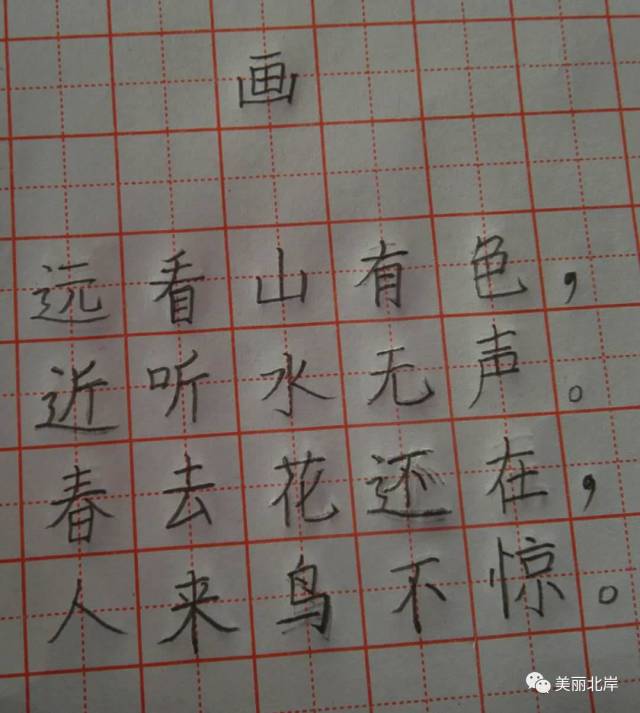 画
远看山有色，
近听水无声。
春去花还在，
人来鸟不惊。
美丽北岸